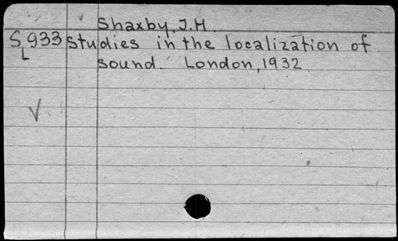 Shaxby, J.H.
S933 Studies in the localization of
L sound. London, 1932